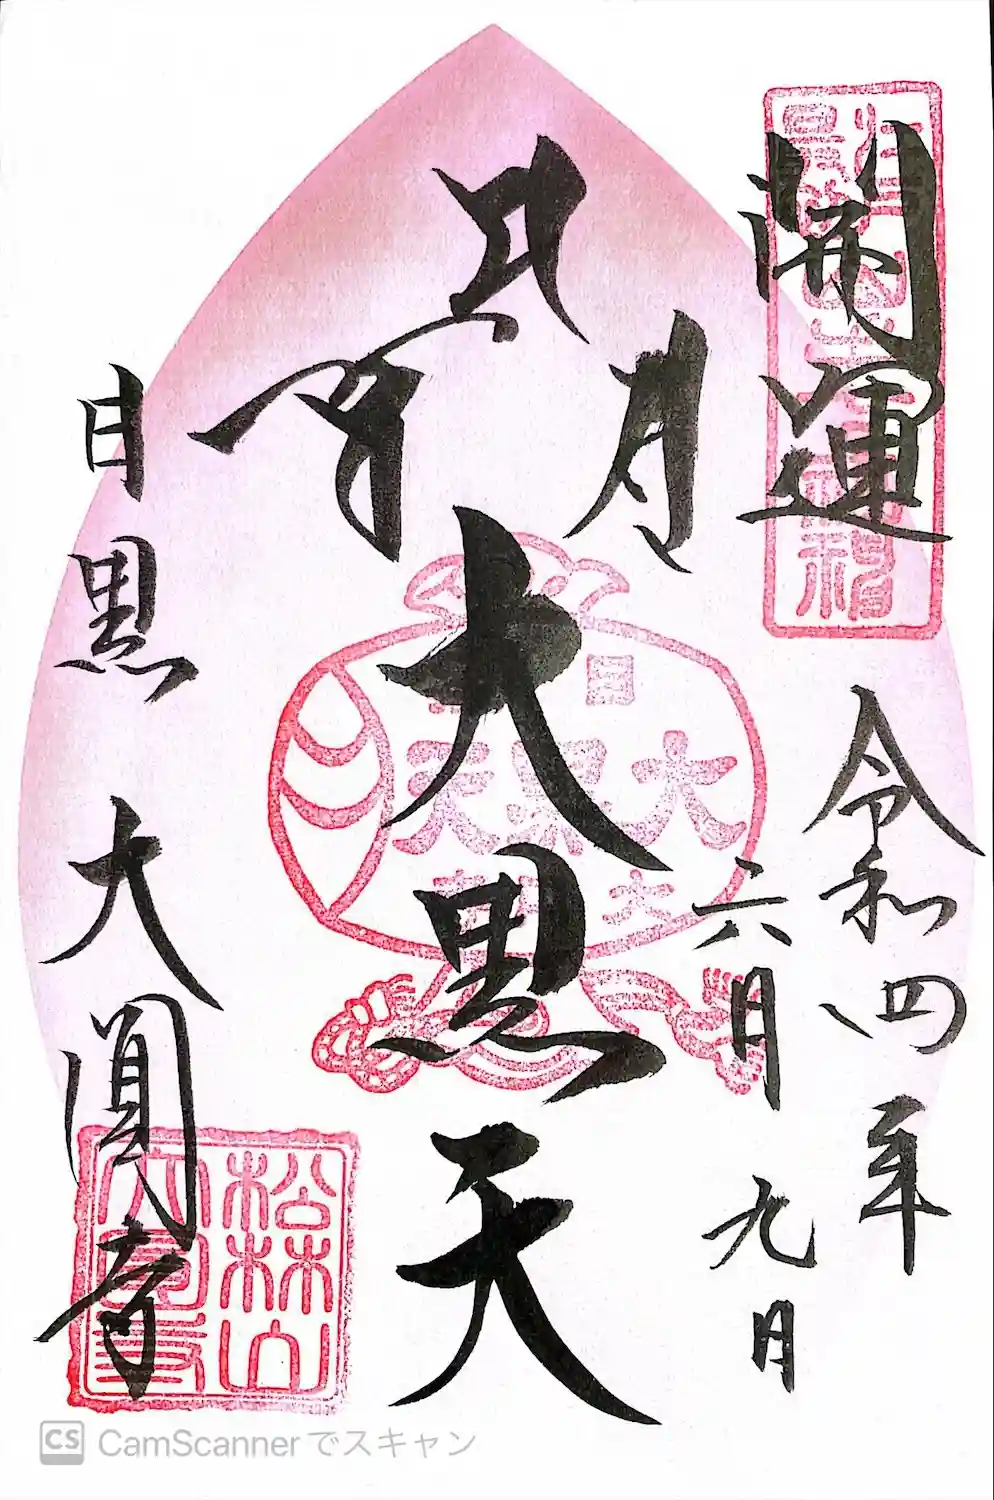 開運
令和四年
六月九日
大黒天
目黒 大圓寺
大黒天
松林山
CS CamScannerでスキャン